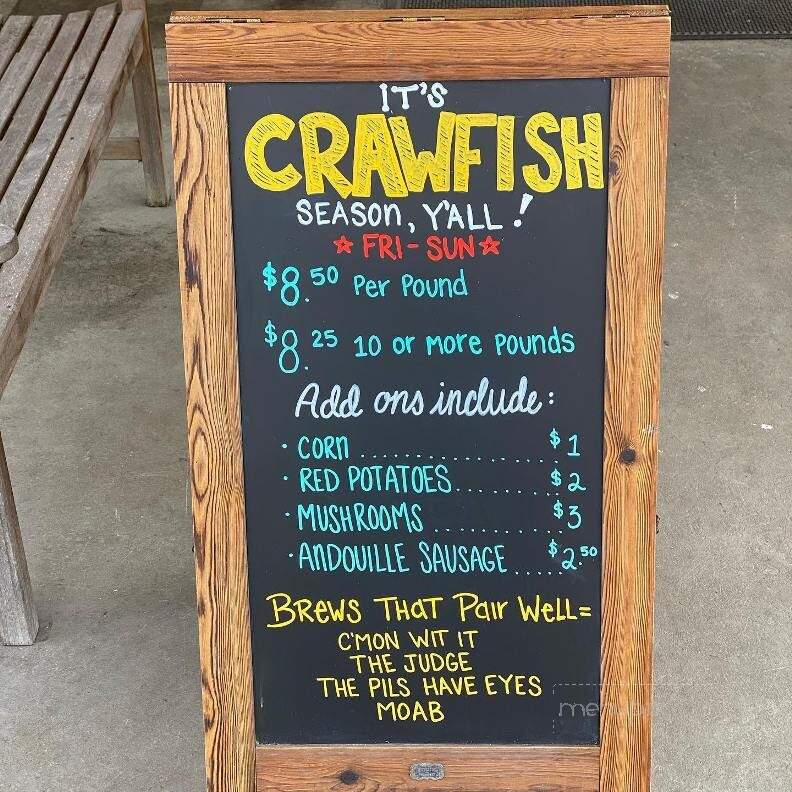 IT'S
CRAWFISH
SEASON, Y'ALL!
☆ FRI - SUN ☆
$8.50 Per Pound
$8.25 10 or more Pounds
Add ons include:
· CORN .................. $1
· RED POTATOES............ $2
· MUSHROOMS ............ $3
· ANDOUILLE SAUSAGE ..... $2.50
BREWS THAT Pair WeLL=
C'MON WIT IT
THE JUDGE
THE PILS HAVE EYES
MOAB